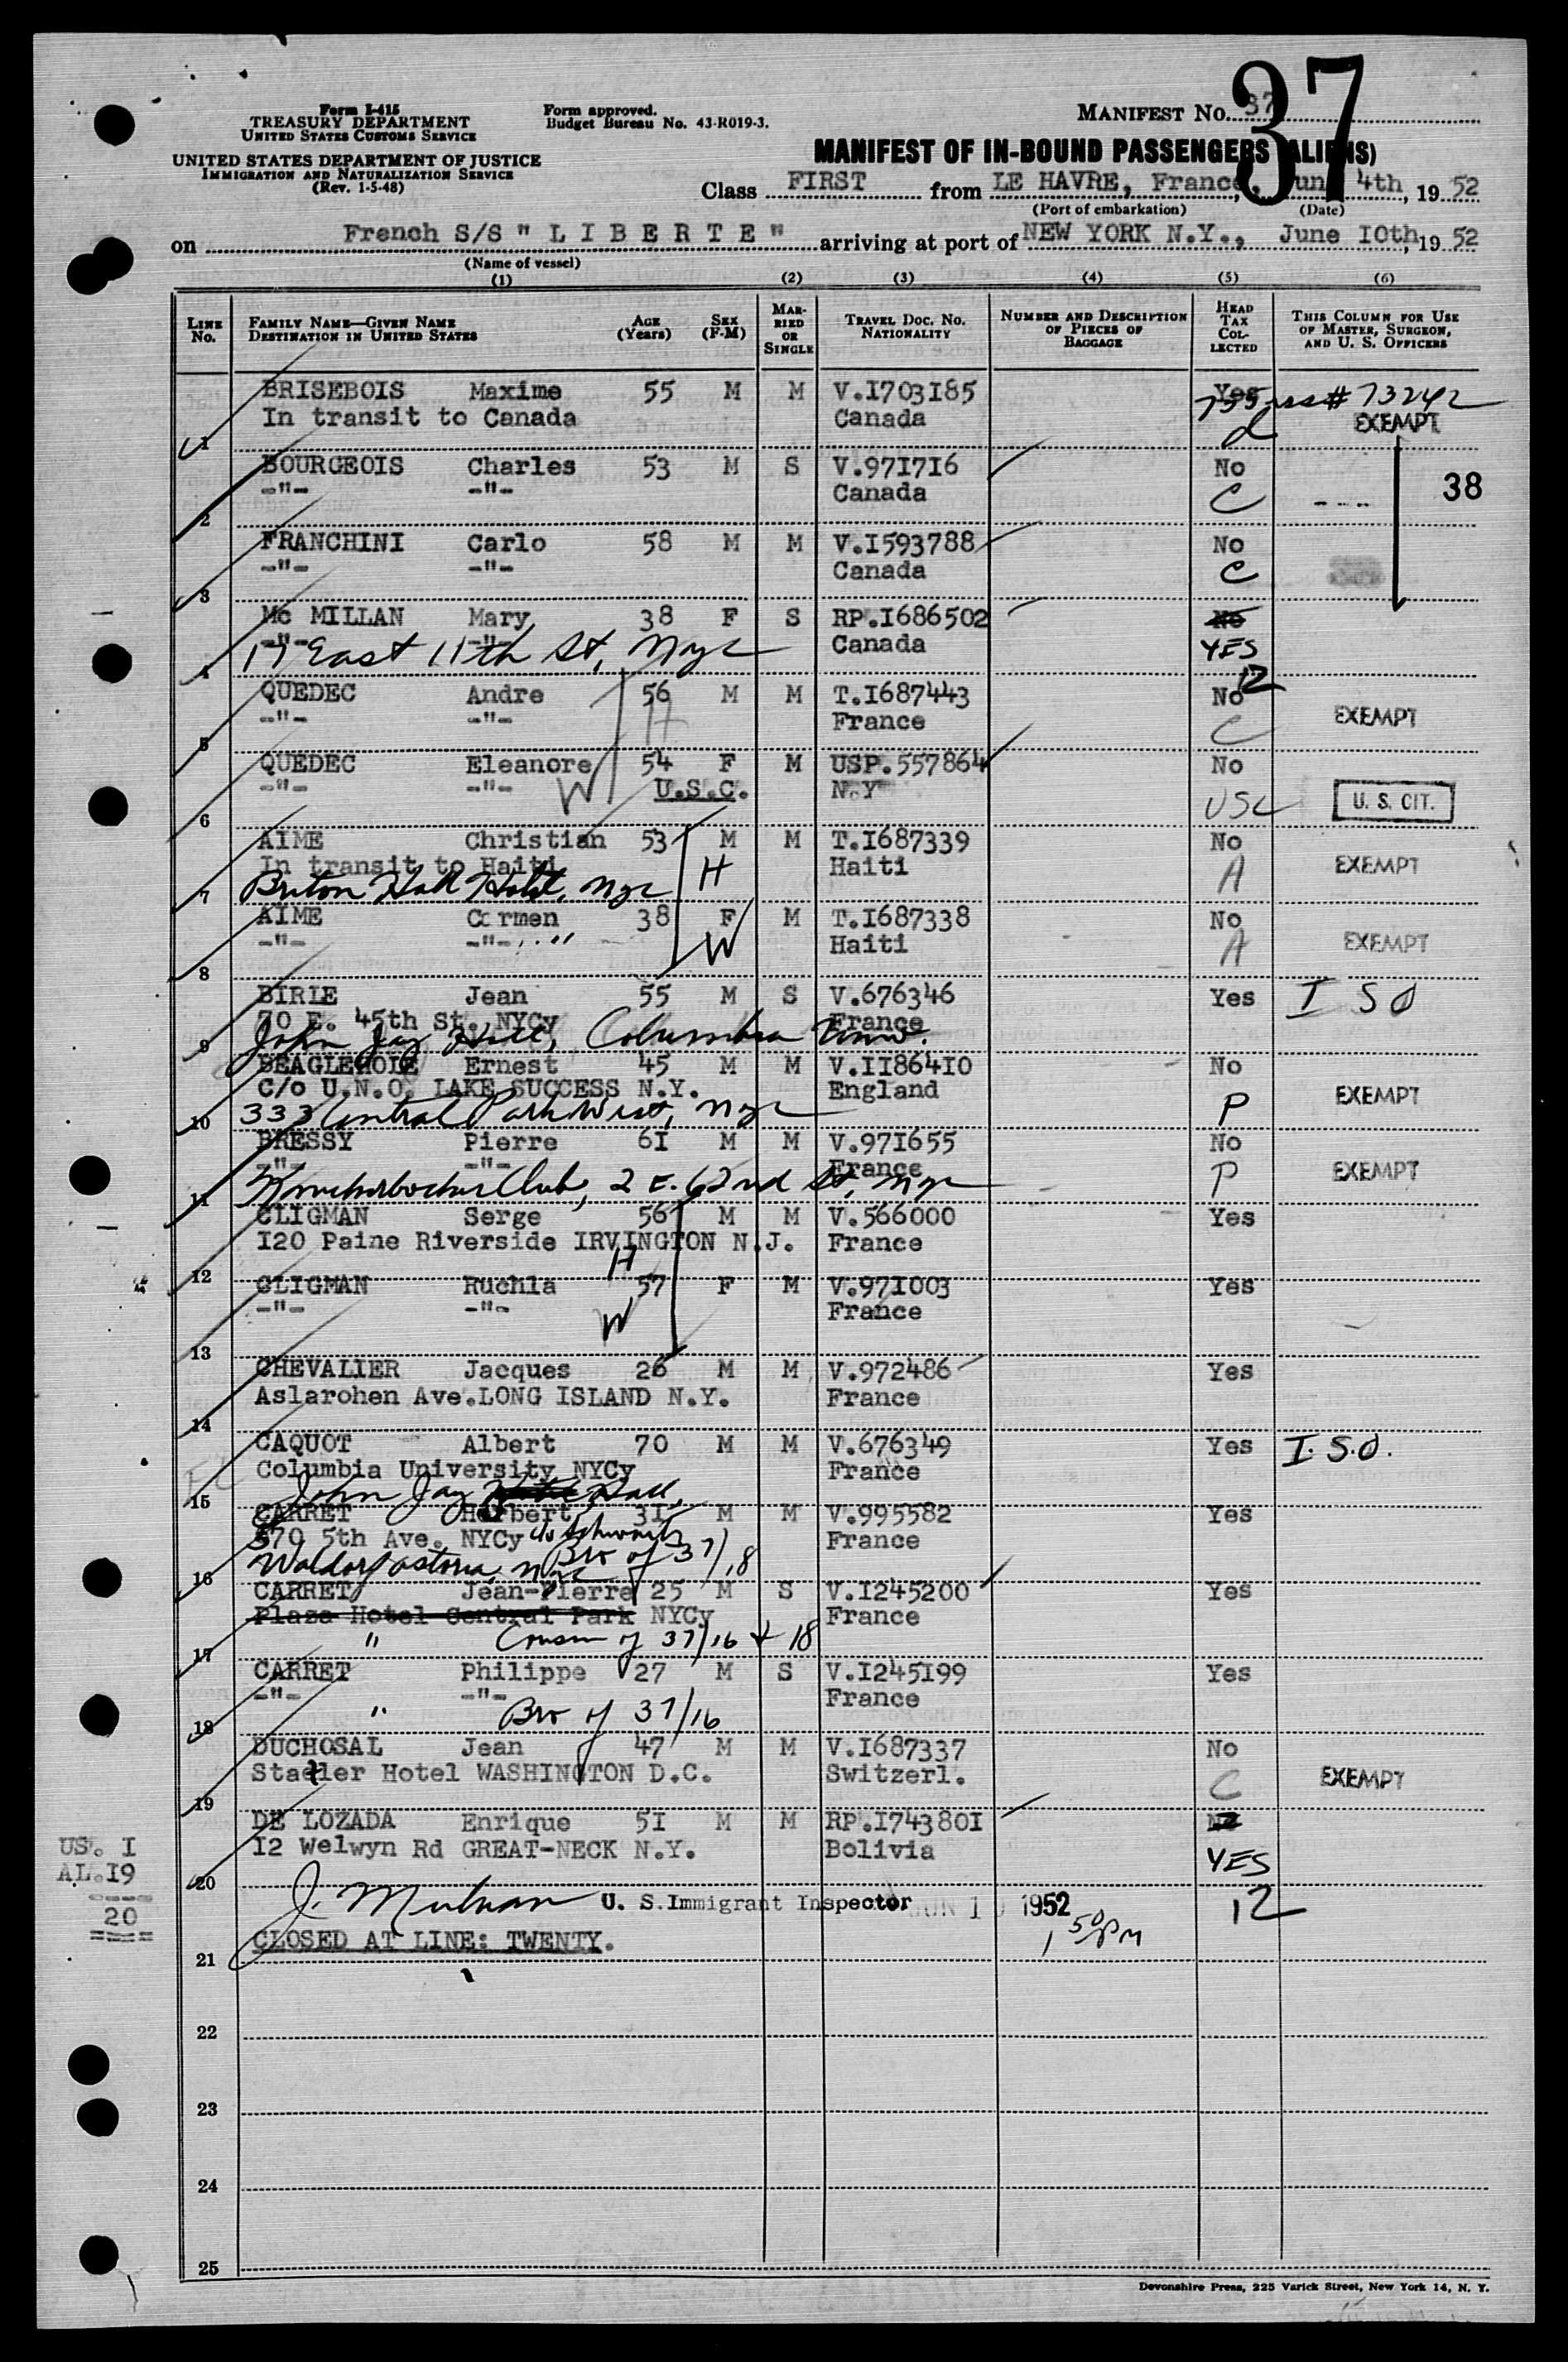 Form I-415
TREASURY DEPARTMENT
UNITED STATES CUSTOMS SERVICE
UNITED STATES DEPARTMENT OF JUSTICE
IMMIGRATION AND NATURALIZATION SERVICE
(Rev. 1-5-48)
Form approved.
Budget Bureau No. 43-R019-3.
MANIFEST No. 37
37
MANIFEST OF IN-BOUND PASSENGERS (ALIENS)
Class FIRST from LE HAVRE, France, June 4th, 19 52
(Port of embarkation) (Date)
on French S/S " L I B E R T E " arriving at port of NEW YORK N.Y., June I0th, 19 52
(Name of vessel)
(1) (2) (3) (4) (5) (6)
LINE No. FAMILY NAME—GIVEN NAME DESTINATION IN UNITED STATES AGE (Years) SEX (F-M) MARRIED OR SINGLE TRAVEL DOC. No. NATIONALITY NUMBER AND DESCRIPTION OF PIECES OF BAGGAGE HEAD TAX COLLECTED THIS COLUMN FOR USE OF MASTER, SURGEON, AND U. S. OFFICERS
BRISEBOIS Maxime 55 M M V.I703I85 Yes # 73242
In transit to Canada Canada EXEMPT
1
BOURGEOIS Charles 53 M S V.97I7I6 No 38
-"- -"- Canada C
2
FRANCHINI Carlo 58 M M V.I593788 No
-"- -"- Canada C
3
Mc MILLAN Mary 38 F S RP.I686502 No
-"- -"- Canada YES
17 East 11th St, Nyc 12
4
QUEDEC Andre 56 M M T.I687443 No
-"- -"- H France C EXEMPT
5
QUEDEC Eleanore 54 F M USP.557864 No
-"- -"- W U.S.C. N.Y USC U. S. CIT.
6
AIME Christian 53 M M T.I687339 No
In transit to Haiti H Haiti A EXEMPT
Briton Hall Hotel, Nyc
7
AIME Carmen 38 F M T.I687338 No
-"- -"- W Haiti A EXEMPT
8
BIRLE Jean 55 M S V.676346 Yes I S O
70 E. 45th St. NYCy France
John Jay Hall, Columbia Univ.
9
BEAGLEHOLE Ernest 45 M M V.II864I0 No
C/o U.N.O. LAKE SUCCESS N.Y. England P EXEMPT
333 Central Park West, Nyc
10
BRESSY Pierre 6I M M V.97I655 No
-"- -"- France P EXEMPT
Knickerbocker Club, 2 E. 62nd St, Nyc
11
CLIGMAN Serge 56 M M V.566000 Yes
I20 Paine Riverside IRVINGTON N.J. France
H
12
CLIGMAN Ruchla 57 F M V.97I003 Yes
-"- -"- W France
13
CHEVALIER Jacques 26 M M V.972486 Yes
Aslarohen Ave.LONG ISLAND N.Y. France
14
CAQUOT Albert 70 M M V.676349 Yes I.S.O.
Columbia University NYCy France
John Jay Hall,
15
CARRET Herbert 3I M M V.995582 Yes
570 5th Ave. NYCy c/o Schwartz France
Waldorf astoria, Nyc Bro of 37/18
16
CARRET Jean-Pierre 25 M S V.I245200 Yes
Plaza Hotel Central Park NYCy France
" Cousin of 37/16 + 18
17
CARRET Philippe 27 M S V.I245I99 Yes
-"- -"- France
" Bro of 37/16
18
DUCHOSAL Jean 47 M M V.I687337 No
Statler Hotel WASHINGTON D.C. Switzerl. C EXEMPT
19
DE LOZADA Enrique 5I M M RP.I74380I
I2 Welwyn Rd GREAT-NECK N.Y. Bolivia YES
20
US. I
AL.I9
----
20
====
U. S. Immigrant Inspector JUN 10 1952 12
1 50 PM
CLOSED AT LINE: TWENTY.
21
22
23
24
25
Devonshire Press, 225 Varick Street, New York 14, N. Y.